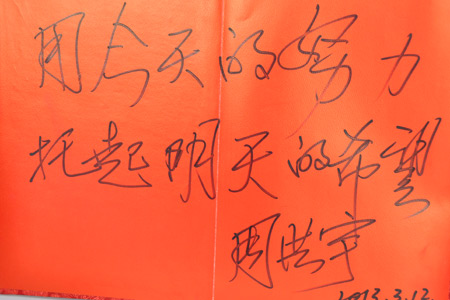 用今天的努力
托起明天的希望
周洪宇
2013.3.12